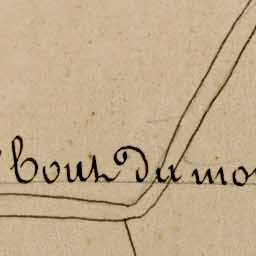 bout du mo